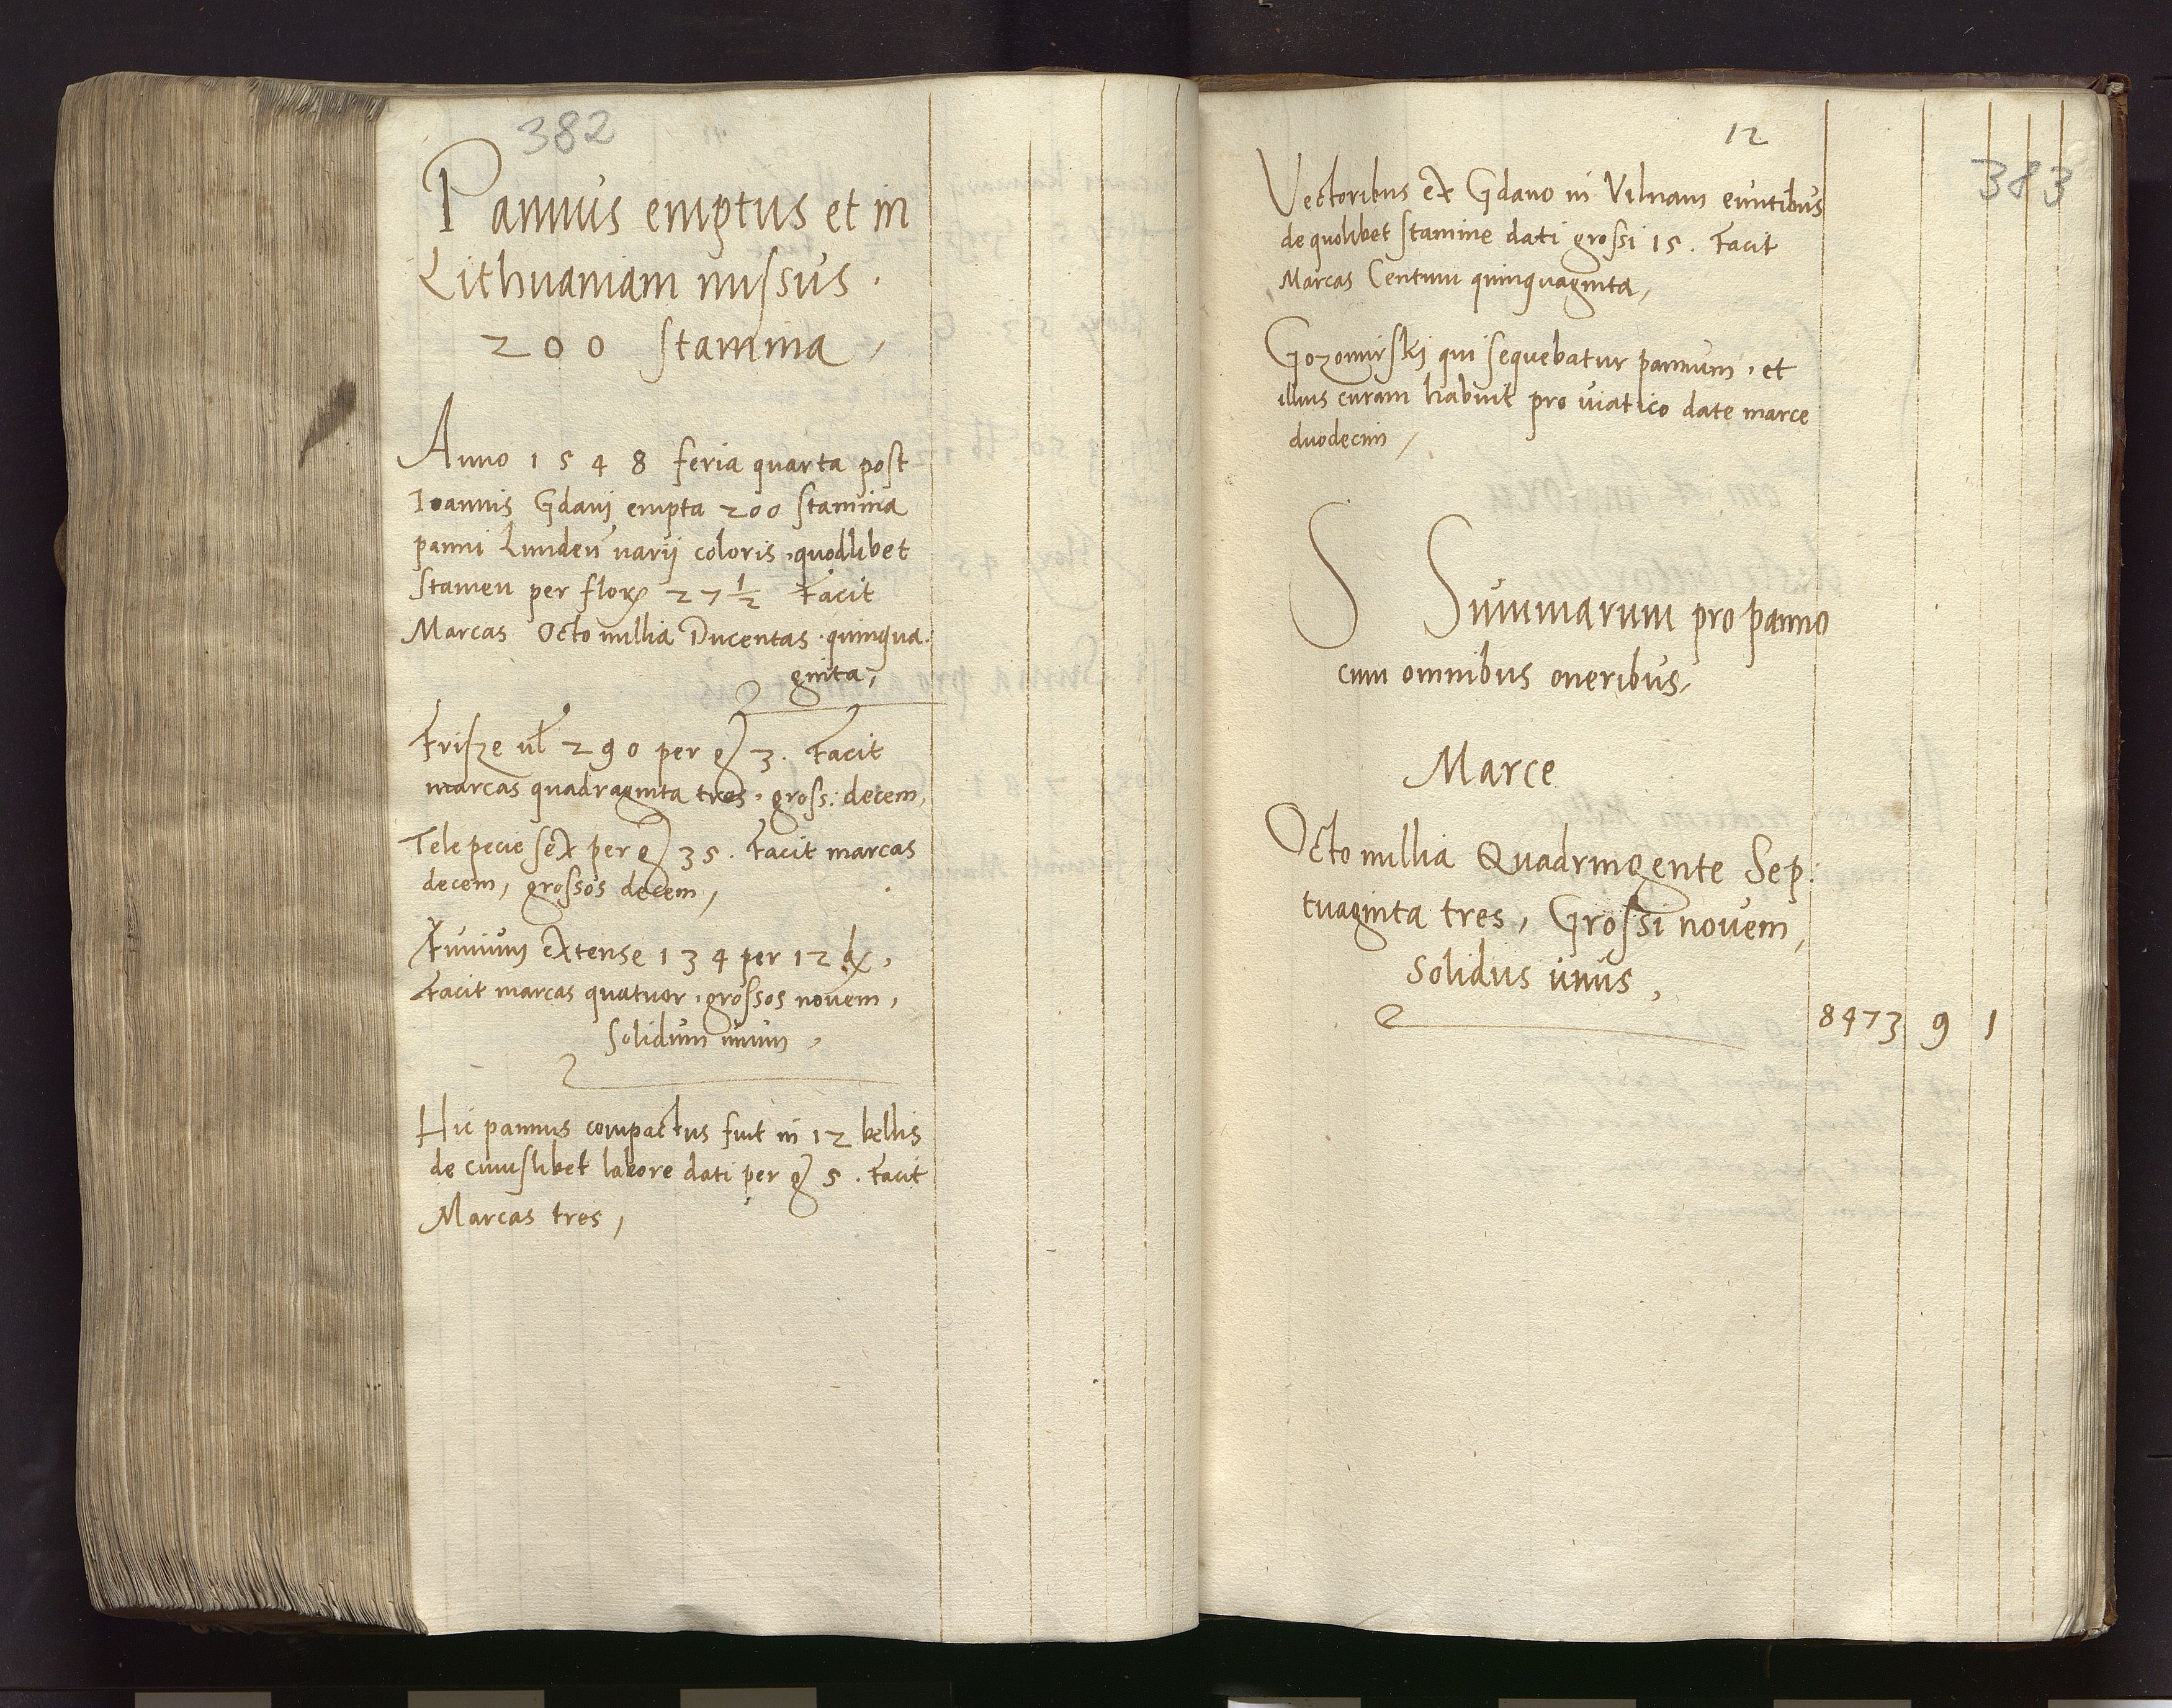 382
Pannus emptus et in
Lithuaniam missus.
200 stamina,
Anno 1548 feria quarta post
Ioannis Gdanj empta 200 stamina
panni Lunden varij coloris, quodlibet
stamen per flor 27 1/2 Facit
Marcas Octo millia Ducentas quinqua-
ginta,
Frisze ul 290 per g 3. Facit
marcas quadraginta tres, gross: decem,
Tele pecie sex per g 35. Facit marcas
decem, grossos decem,
Funium extense 134 per 12 d,
Facit marcas quatuor, grossos novem,
Solidum unum,
Hic pannus compactus fuit in 12 bellis
de cuiuslibet labore dati per g 5. Facit
Marcas tres,
12
383
Vectoribus ex Gdano in Vilnam euntibus
de quolibet stamine dati grossi 15. Facit
Marcas Centum quinquaginta,
Gozomirskj qui sequebatur pannum, et
illius curam habuit pro viatico date marce
duodecim,
S Summarum pro panno
cum omnibus oneribus,
Marce
Octo millia Quadringente Sep:
tuaginta tres, Grossi novem,
Solidus unus,
8473 9 1